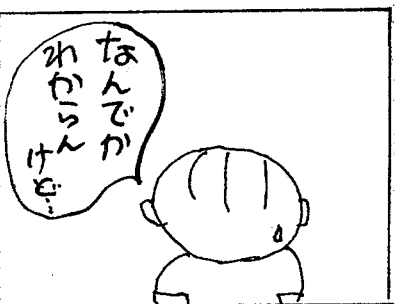 なんでか
わからん
けど…